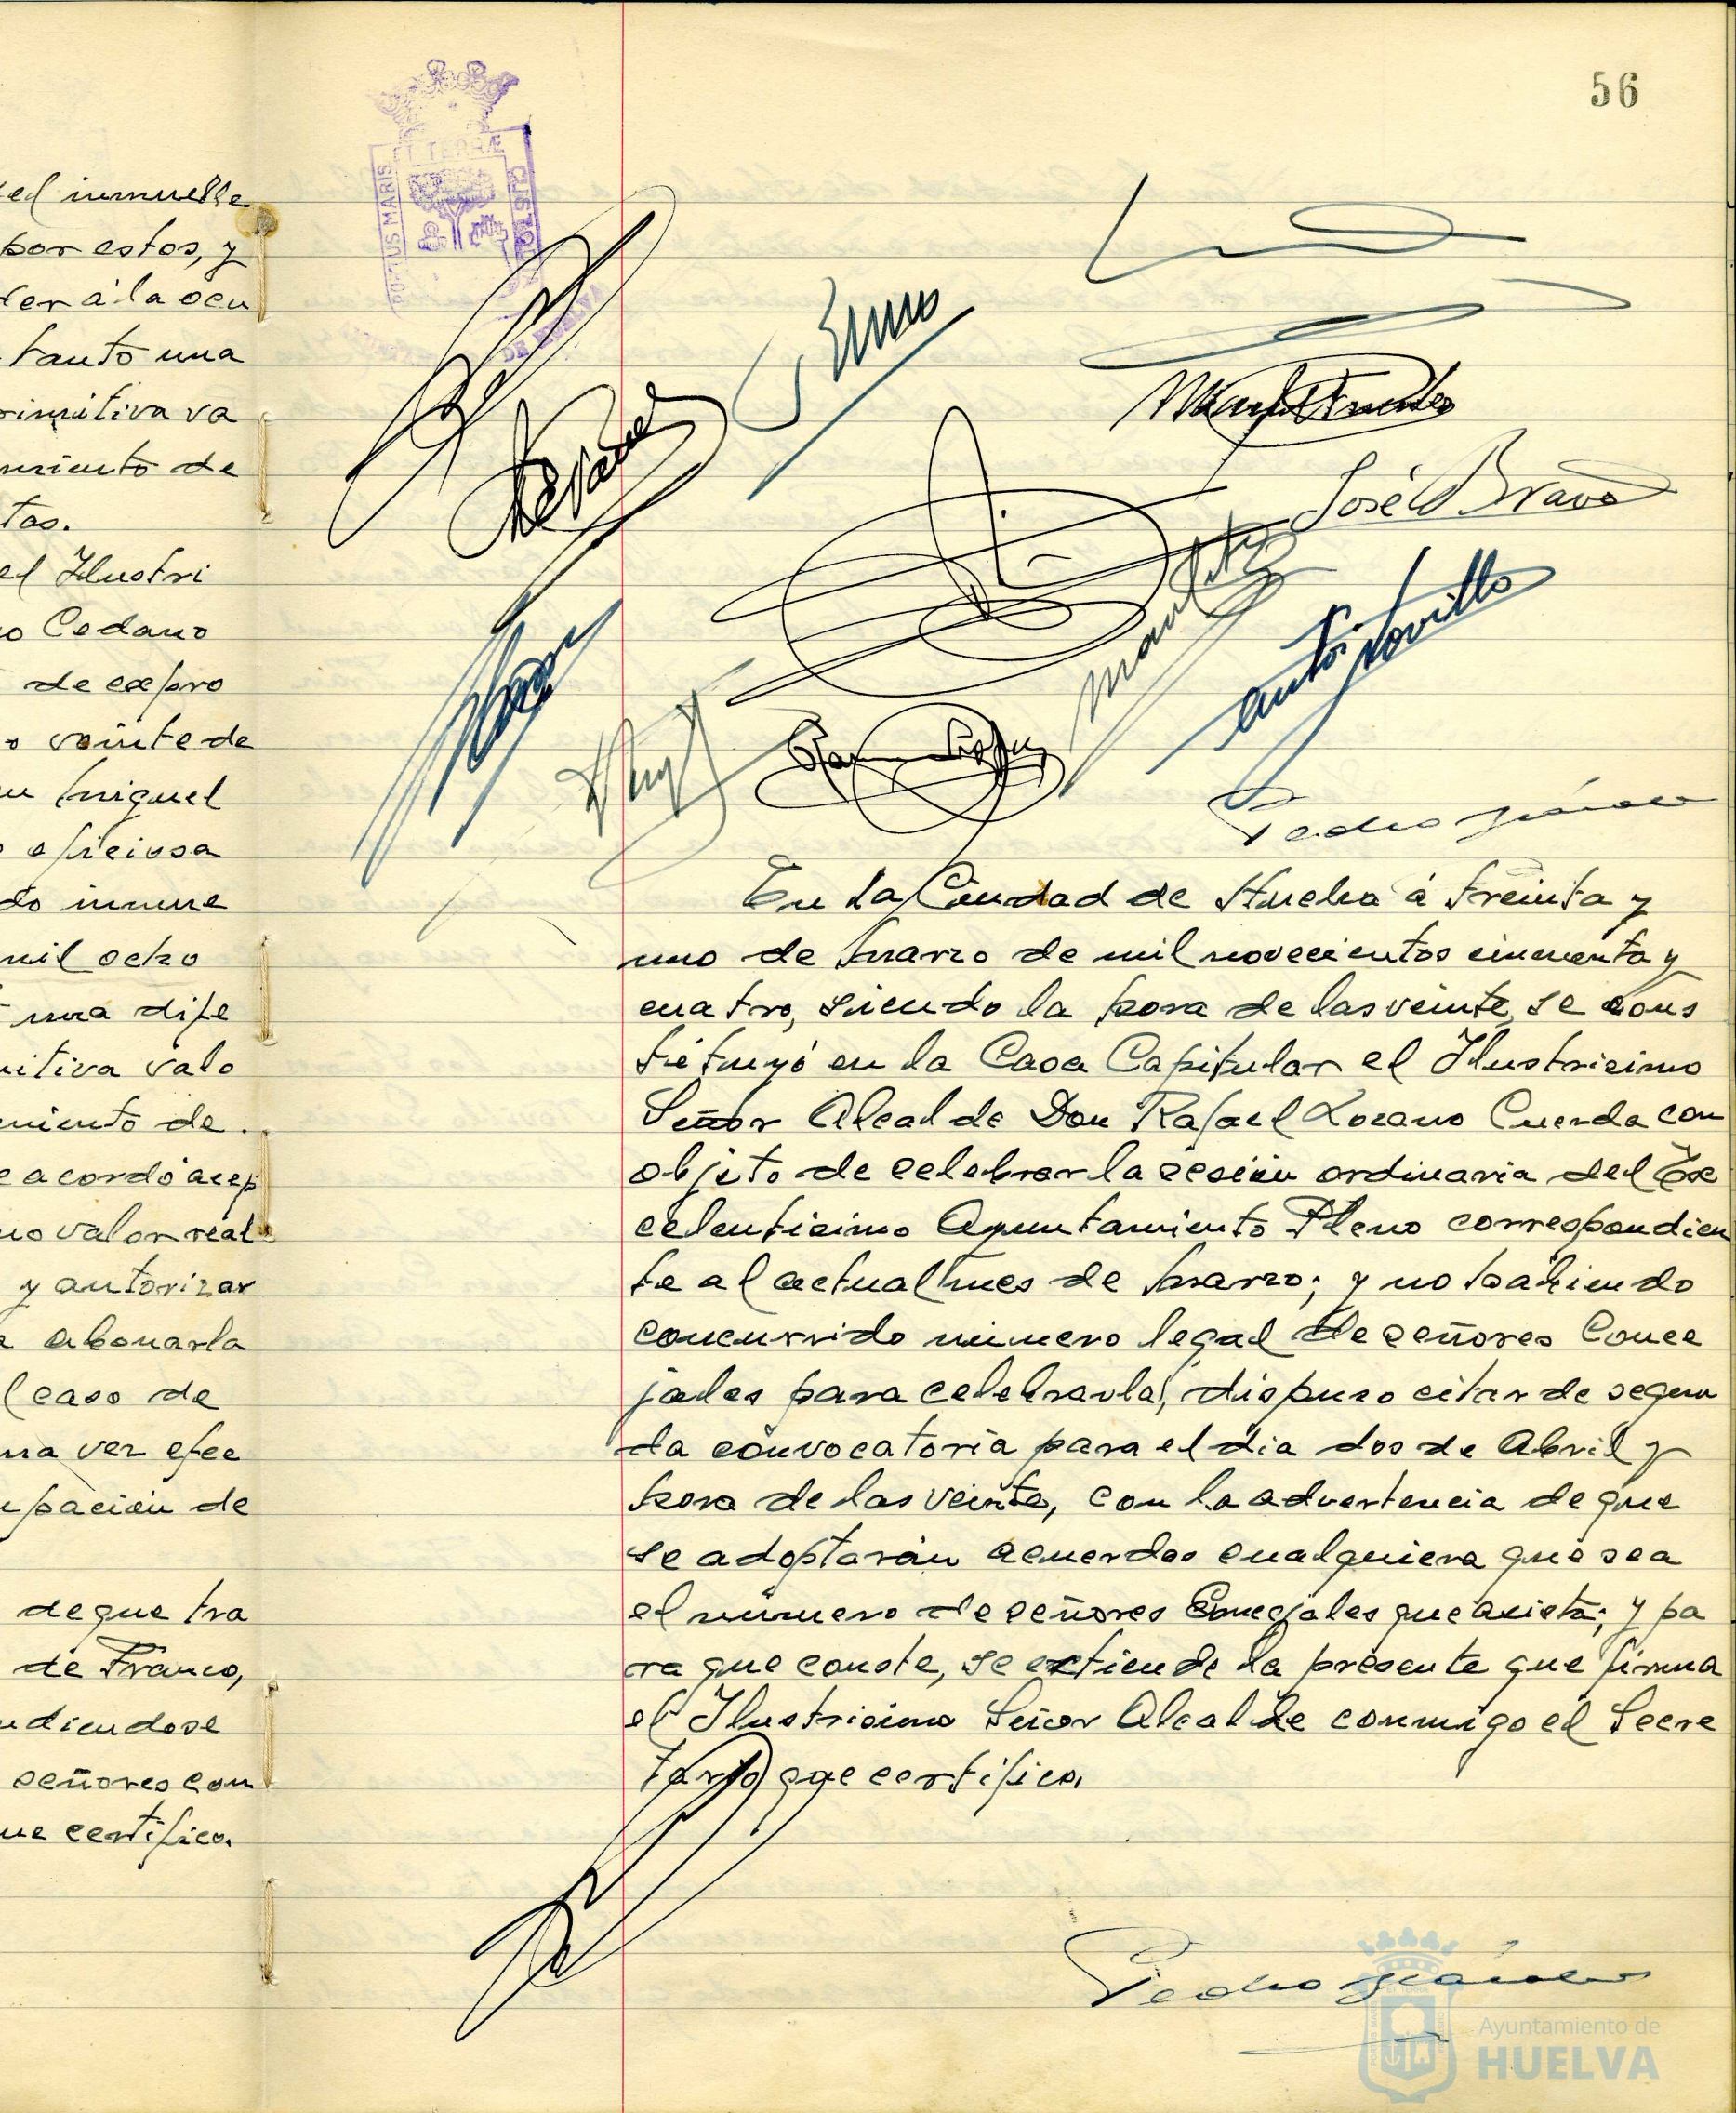 56
PORTUS MARIS ET TERRÆ CUSTODIA
DE HUELVA
el inmueble
por estos, y
der á la ocu
tanto una
rimitiva va
miento de
tas.
el Ilustri
o Cedano
de expro
o veinte de
Miguel
oficiosa
do inmue
mil ocho
una dife
nitiva valo
miento de
e acordó acep
mo valor real
y autorizar
a abonarla
l caso de
una vez efec
upación de
de que tra
de Franco,
ndiendose
señores con
que certifico.
José Bravo
Antº Novillo
Pedro
En la Ciudad de Huelva á treinta y
uno de Marzo de mil novecientos cincuenta y
cuatro, siendo la hora de las veinte, se cons
tituyó en la Casa Capitular el Ilustrisimo
Señor Alcalde Don Rafael Lozano Cuerda con
objeto de celebrar la sesión ordinaria del Ex
celentisimo Ayuntamiento Pleno correspondien
te al actual mes de Marzo; y no habiendo
concurrido número legal de señores Conce
jales para celebrarla, dispuso citar de segun
da convocatoria para el dia dos de Abril y
hora de las veinte, con la advertencia de que
se adoptarán acuerdos cualquiera que sea
el número de señores Concejales que asista; y pa
ra que conste, se extiende la presente que firma
el Ilustrisimo Señor Alcalde conmigo el Secre
tario que certifico.
Pedro
Ayuntamiento de
HUELVA